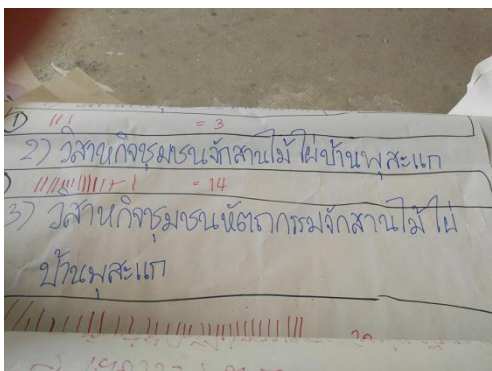 1)
= 3
2) วิสาหกิจชุมชนจักสานไม้ไผ่บ้านพุสะแก
= 14
3) วิสาหกิจชุมชนหัตถกรรมจักสานไม้ไผ่
บ้านพุสะแก